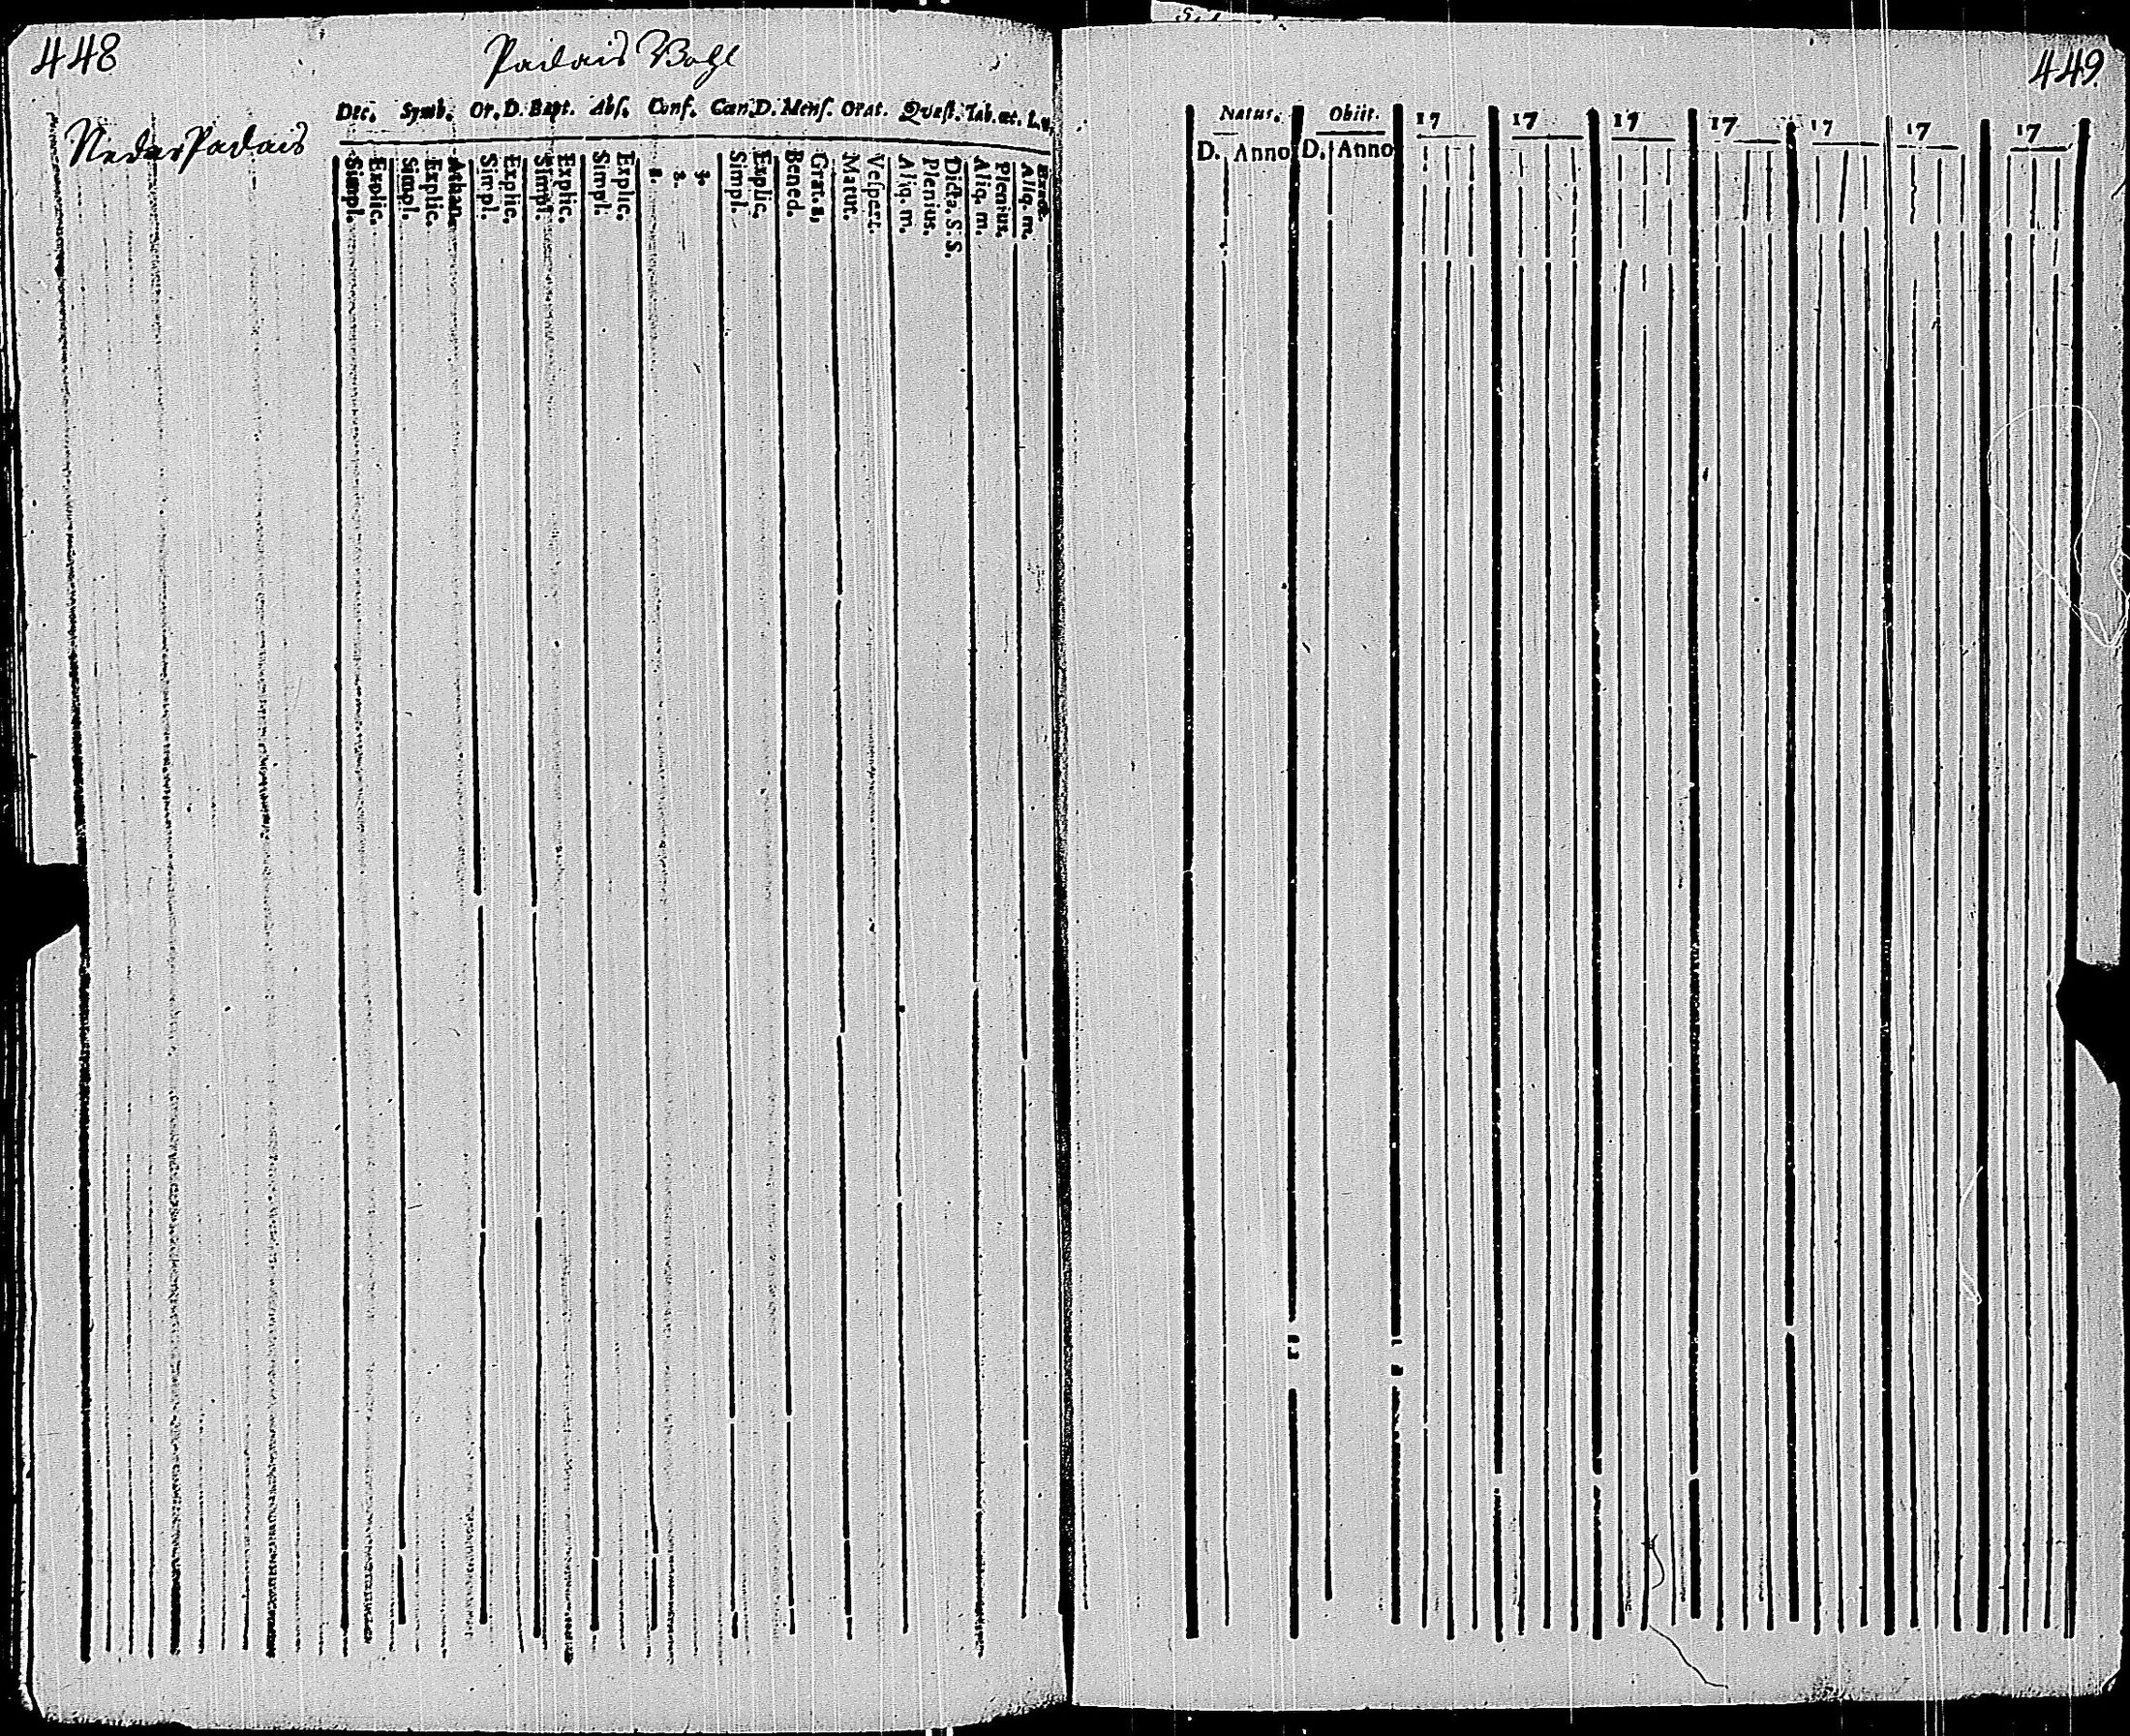 448
Padais Bohl
Dec. Symb. Or. D. Bapt. Abs. Conf. Cœn. D. Mens. Orat. Quæst. Tab. œc. L. v.
Neder Padais
Simpl. Explic. Simpl. Explic. Athan. Simpl. Explic. Simpl. Explic. Simpl. Explic. 1. 2. 3. Simpl. Explic. Bened. Grat. a. Matut. Vespert. Aliq. m. Plenius. Dicta. S. S. Aliq. m. Plenius. Aliq. m. Exact.
449.
Natus. Obiit. 17 17 17 17 17 17 17
D. Anno D. Anno